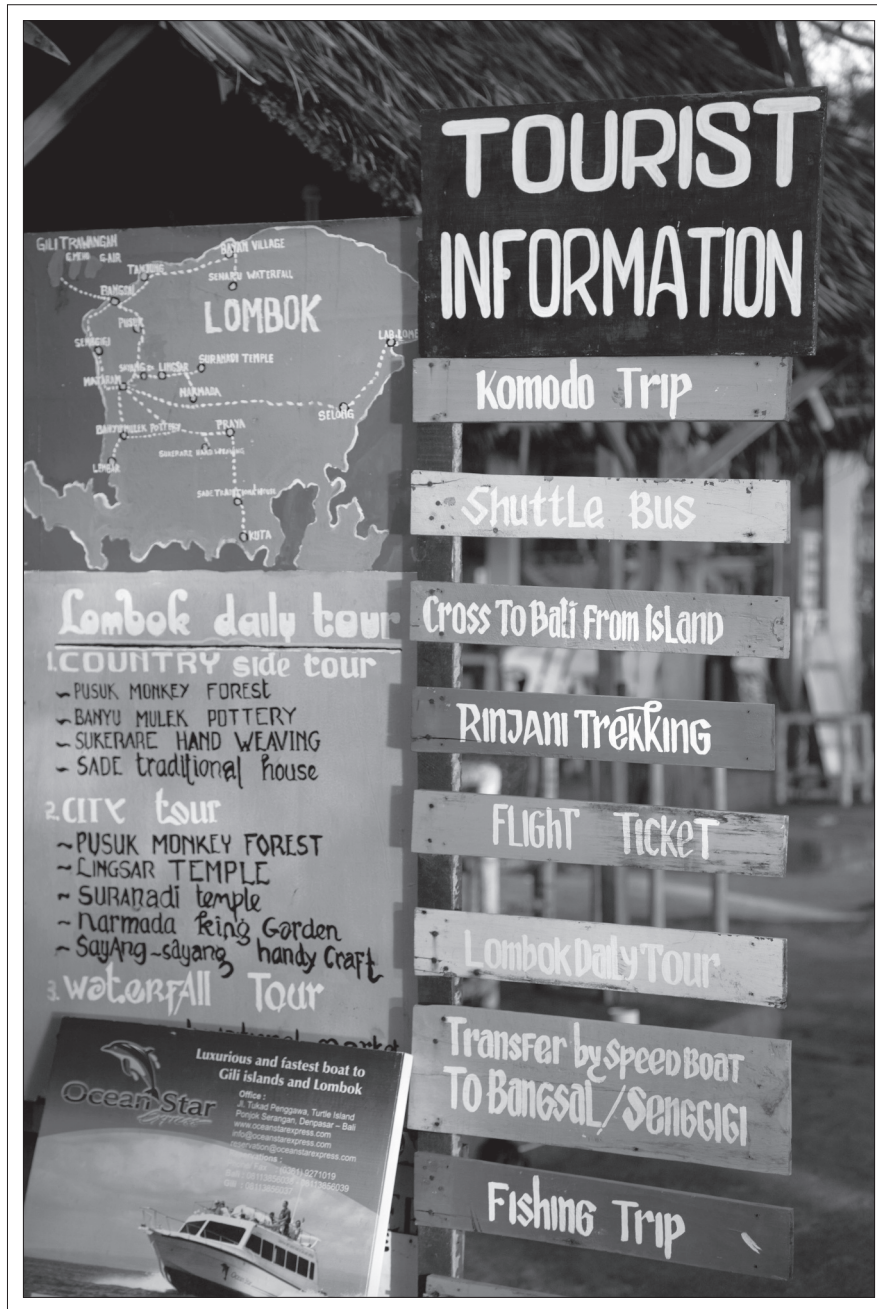 TOURIST
INFORMATION
Komodo Trip
Shuttle Bus
Cross To Bali From Island
Rinjani Trekking
Flight Ticket
Lombok Daily Tour
Transfer by Speed Boat
To Bangsal/Senggigi
Fishing Trip
GILI TRAWANGAN
G.MENO G.AIR
BAYAN VILLAGE
TANJUNG
SENARU WATERFALL
BANGSAL
LOMBOK
PUSUK
SENGGIGI
LAB-LOMB
SURANADI TEMPLE
LINGSAR
MATARAM
NARMADA
SELONG
BANYUMULEK POTTERY
PRAYA
SUKERARE HAND WEAVING
LEMBAR
SADE TRADITIONAL HOUSE
KUTA
Lombok daily tour
1.COUNTRY side tour
~ PUSUK MONKEY FOREST
~ BANYU MULEK POTTERY
~ SUKERARE HAND WEAVING
~ SADE traditional house
2.CITY tour
~ PUSUK MONKEY FOREST
~ LINGSAR TEMPLE
~ SURANadi temple
~ narmada king Garden
~ SayAng-sayang handy Craft
3.WaterFAll Tour
market
Ocean Star
Express
Luxurious and fastest boat to
Gili islands and Lombok
Office :
Jl. Tukad Penggawa, Turtle Island
Ponjok Serangan, Denpasar – Bali
www.oceanstarexpress.com
info@oceanstarexpress.com
reservation@oceanstarexpress.com